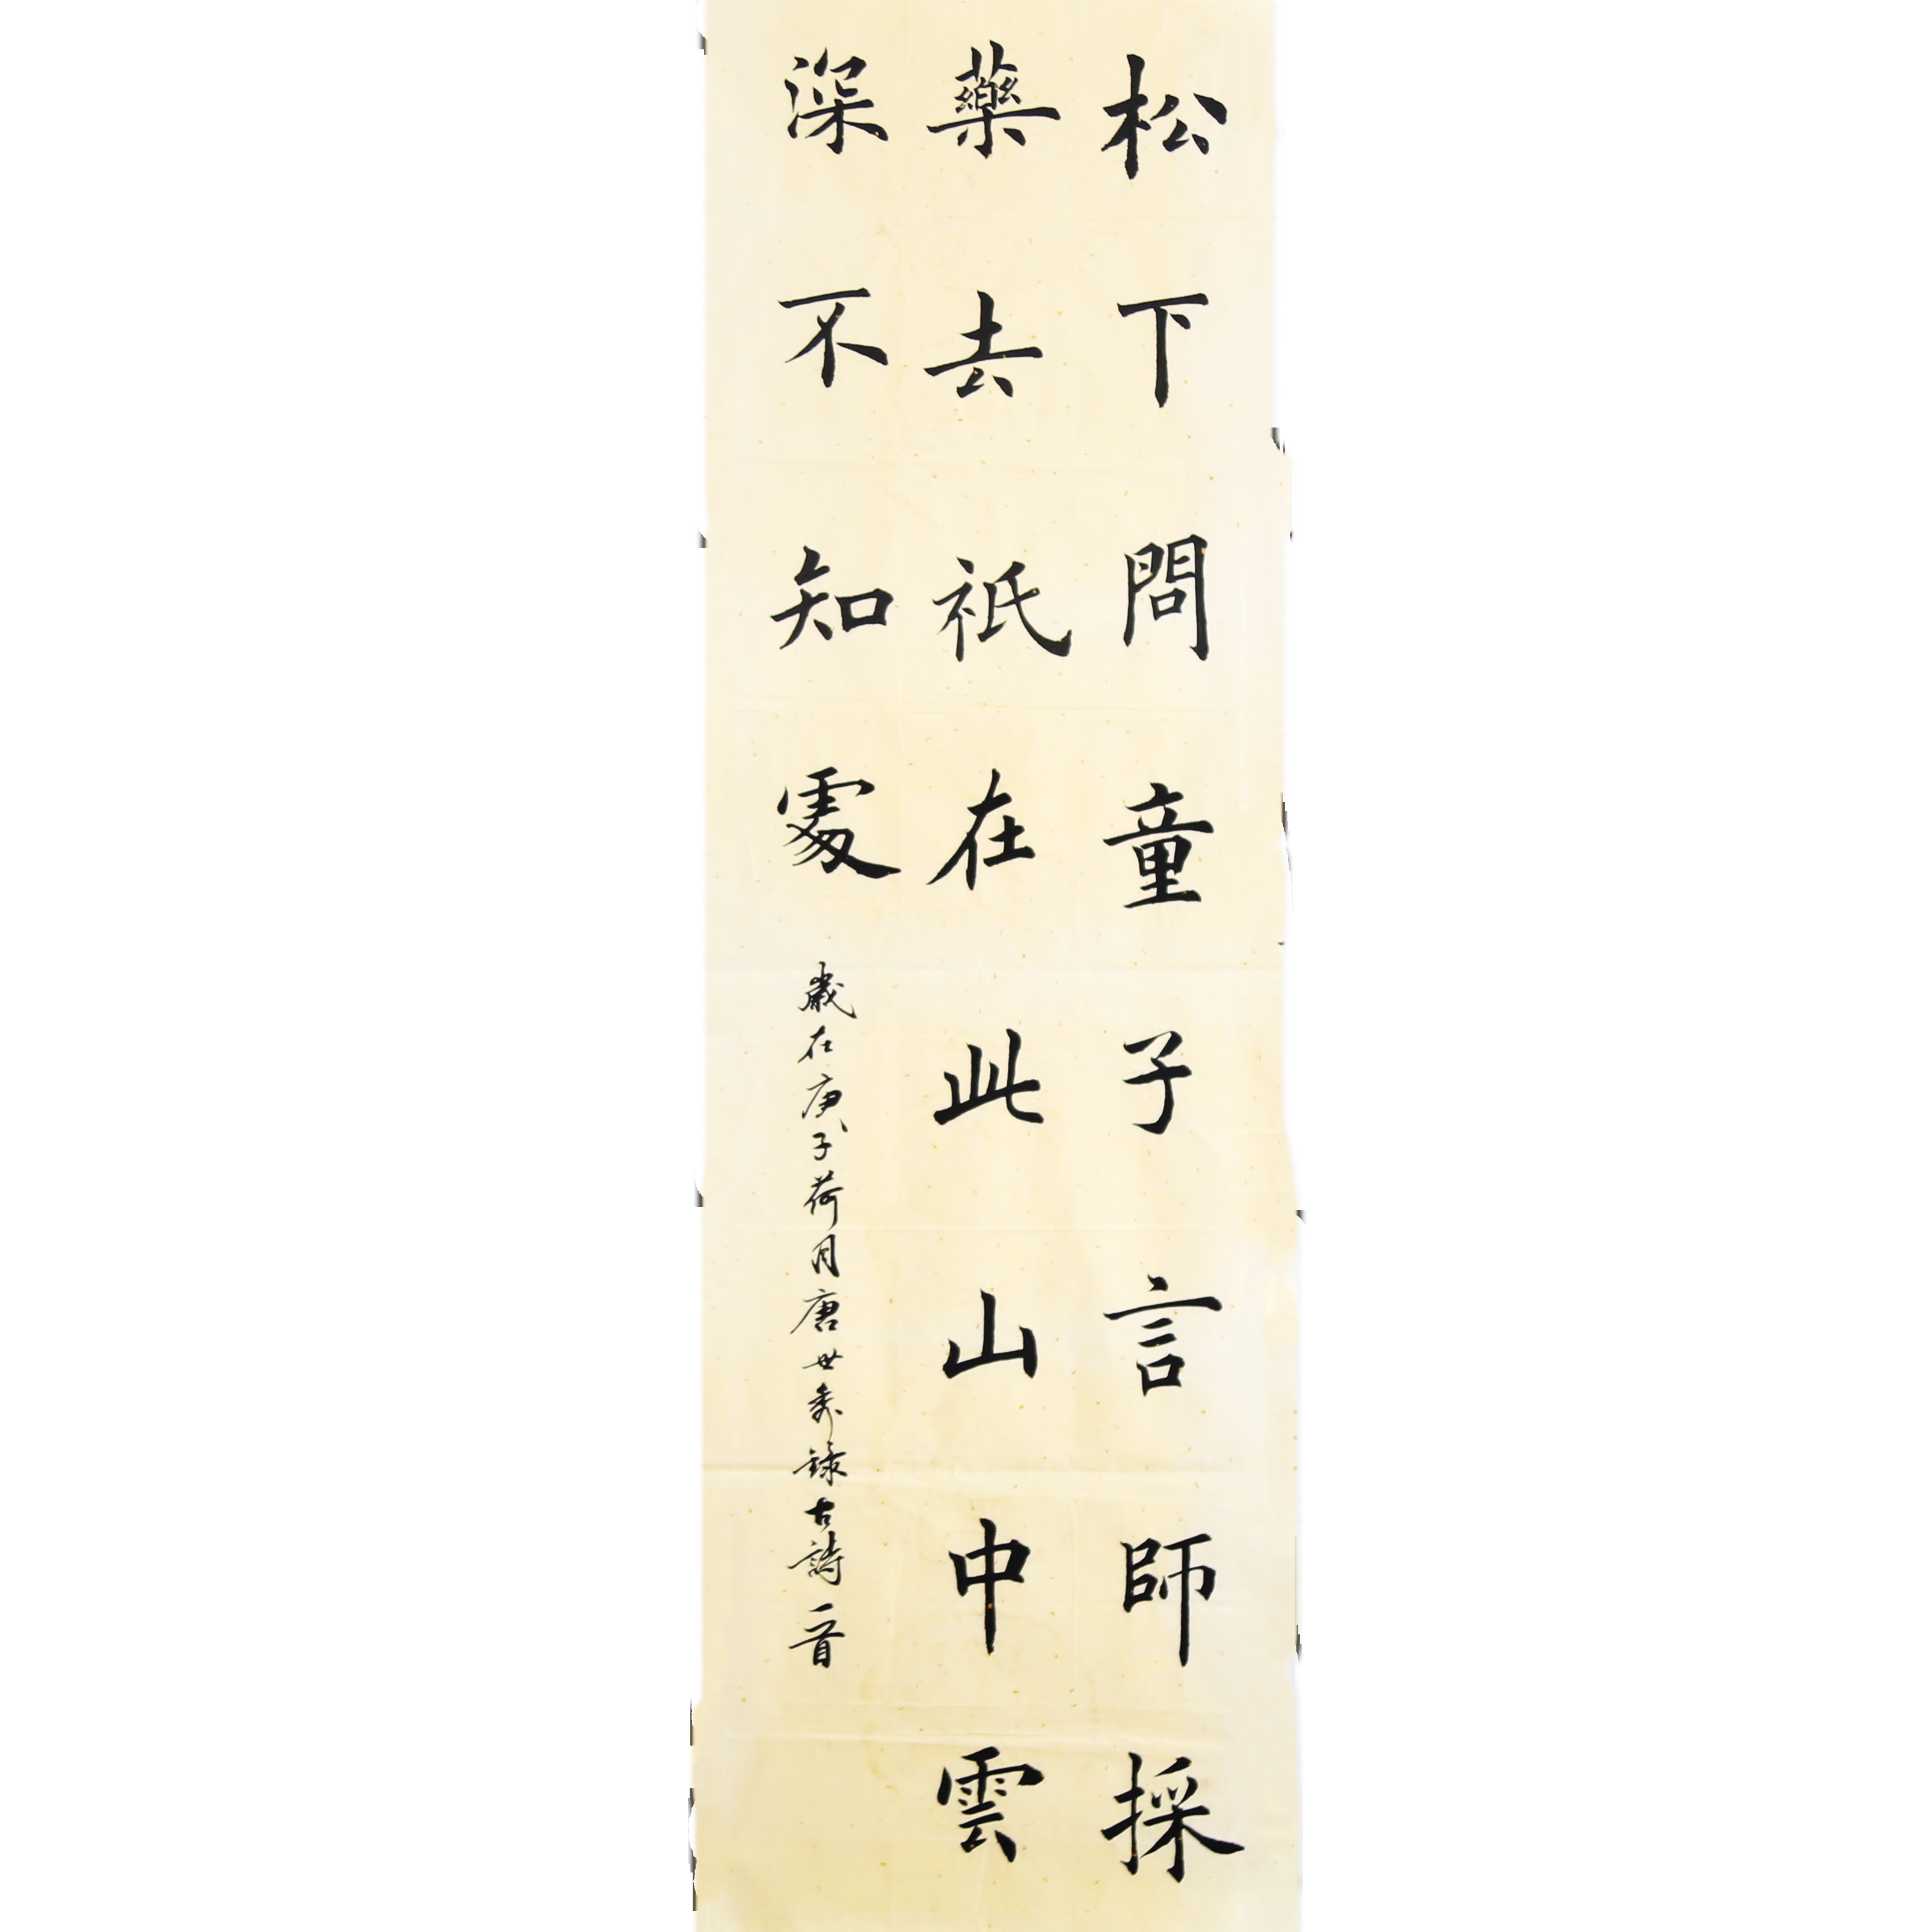 松下問童子言師採
藥去祇在此山中雲
深不知處
歲在庚子荷月唐世秀錄古詩一首